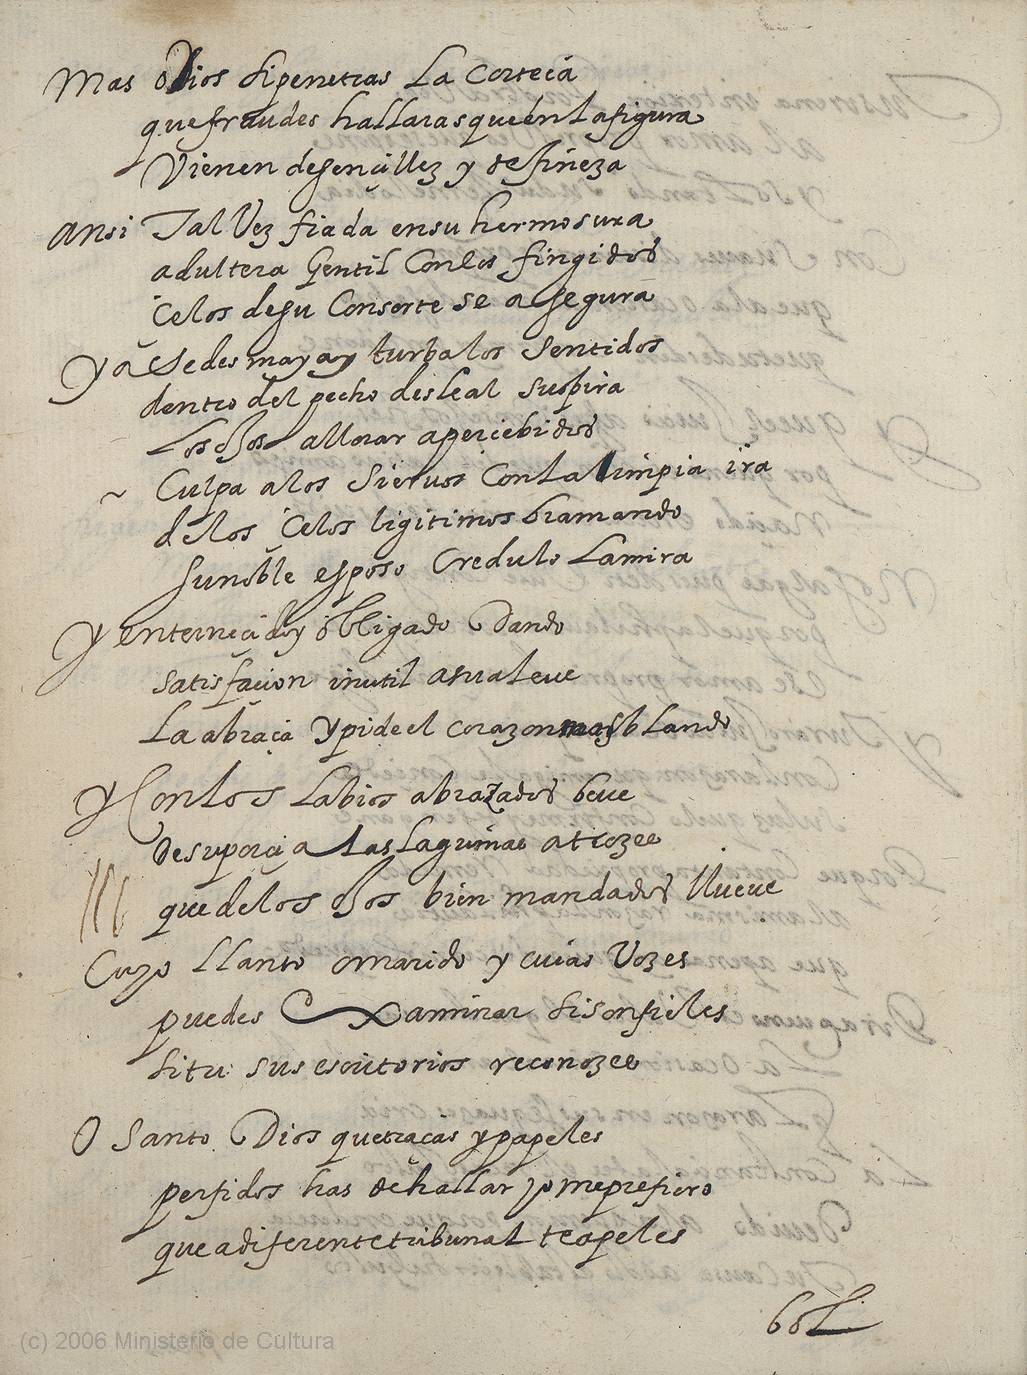 Mas o Dios si penetras La Corteça
que fraudes hallaras que en la figura
Vienen de sençillez y de fineza
ansi Tal Vez fiada en su hermosura
adultera Gentil Con los fingidos
Çelos de su Consorte se asegura
ya se desmaya y turba los Sentidos
dentro del pecho desleal suspira
Los ojos a llorar apercebidos
Culpa a los Siervos Contra limpia ira
de los Çelos ligitimos bramando
su noble esposo Credulo La mira
y enterneçido y obligado Dando
satisfaçion inutil a su aleve
La abraça y pide el corazon mas blando
y Con los Labios abrazados beve
de su porçia las lagrimas atrozes
que de los ojos bien mandados llueve
Cuyo LLanto o marido y cuias Vozes
puedes Examinar si son fieles
si tu sus escritorios reconozes
O Santo Dios que traças y papeles
perfidos has de hallar yo me prefiero
que a diferente tribunal te apeles
(c) 2006 Ministerio de Cultura